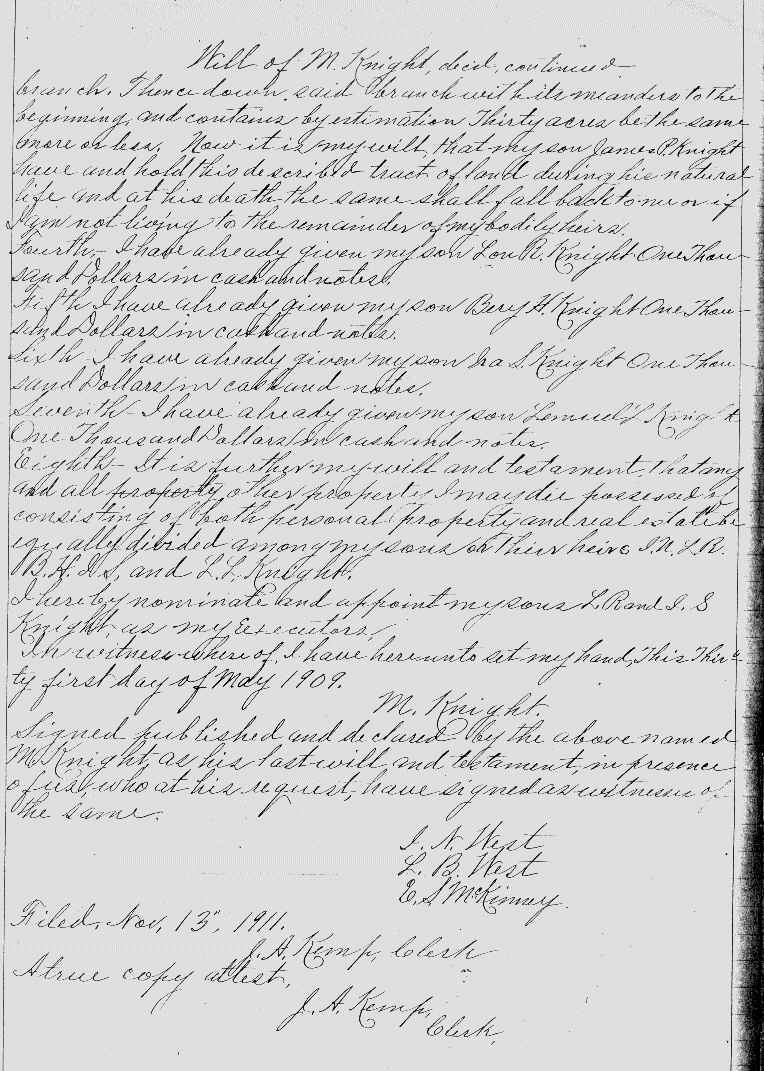 Will of M. Knight, decd, continued
branch. Thence down said branch with its meanders to the
beginning, and contains by estimation Thirty acres be the same
more or less. Now it is my will, that my son James P. Knight
have and hold this described tract of land during his natural
life and at his death the same shall fall back to me or if
I am not living to the remainder of my bodily heirs.
Fourth,- I have already given my son Lon R. Knight One Thou-
sand Dollars in cash and notes.
Fifth I have already given my son Bery H. Knight One Thou-
sand Dollars in cash and notes.
Sixth - I have already given my son Ira S. Knight One Thou-
sand Dollars in cash and notes.
Seventh - I have already given my son Lemuel L Knight
One Thousand Dollars in cash and notes.
Eighth - It is further my will and testament, that any
and all property other property I may die possessed of
consisting of both personal property and real estate be
equally divided among my sons or their heirs I. N. L. R.
B. H. I. S. and L. L. Knight.
I hereby nominate and appoint my sons L. R and I. S
Knight, as my Executors.
In witness where of, I have here unto set my hand, This Thir-
ty first day of May 1909.
M. Knight
Signed published and declared by the above named
M. Knight, as his last will and testament, in presence
of us, who at his request, have signed as witnesses of
the same.
I. N. West
L. B. West
E. S McKinney.
Filed, Nov, 13", 1911.
J. A. Kemp, Clerk
A true copy attest,
J. A. Kemp,
Clerk,